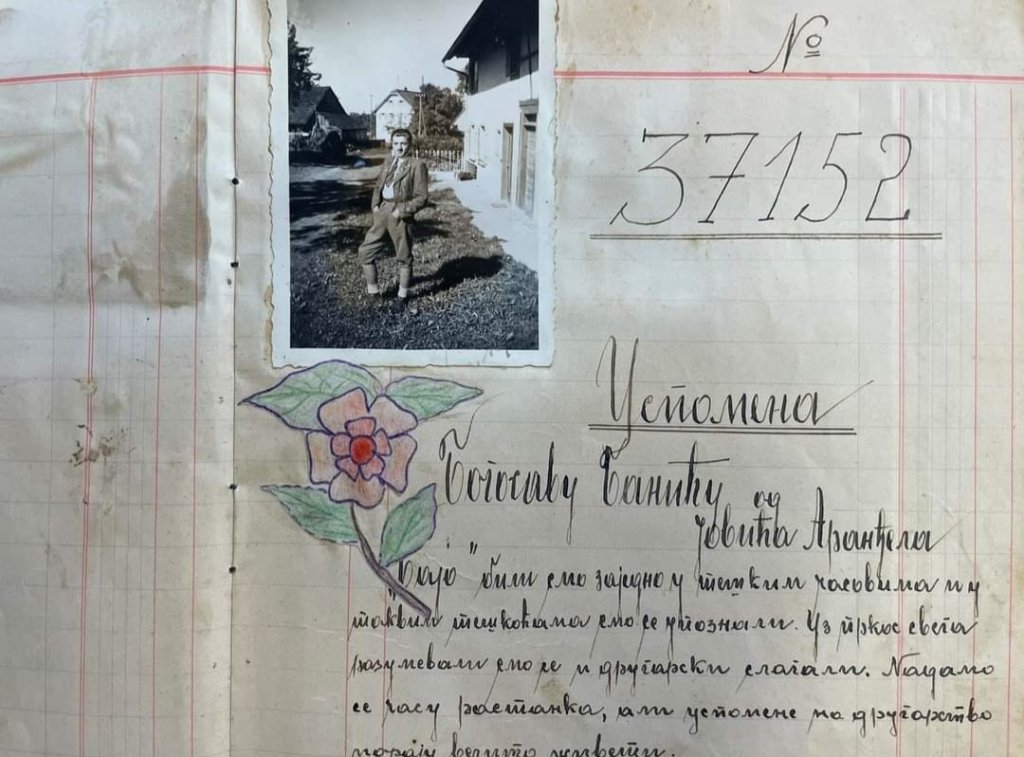 №
37152
Успомена
Богосаву Банићу од
Јовића Аранђела
"Бајо" били смо заједно у тешким часовима и у
таквим тешкоћама смо се упознали. Уз пркос свега
разумевали смо се и другарски слагали. Надамо
се часу растанка, али успомене на другарство
морају вечито живети.